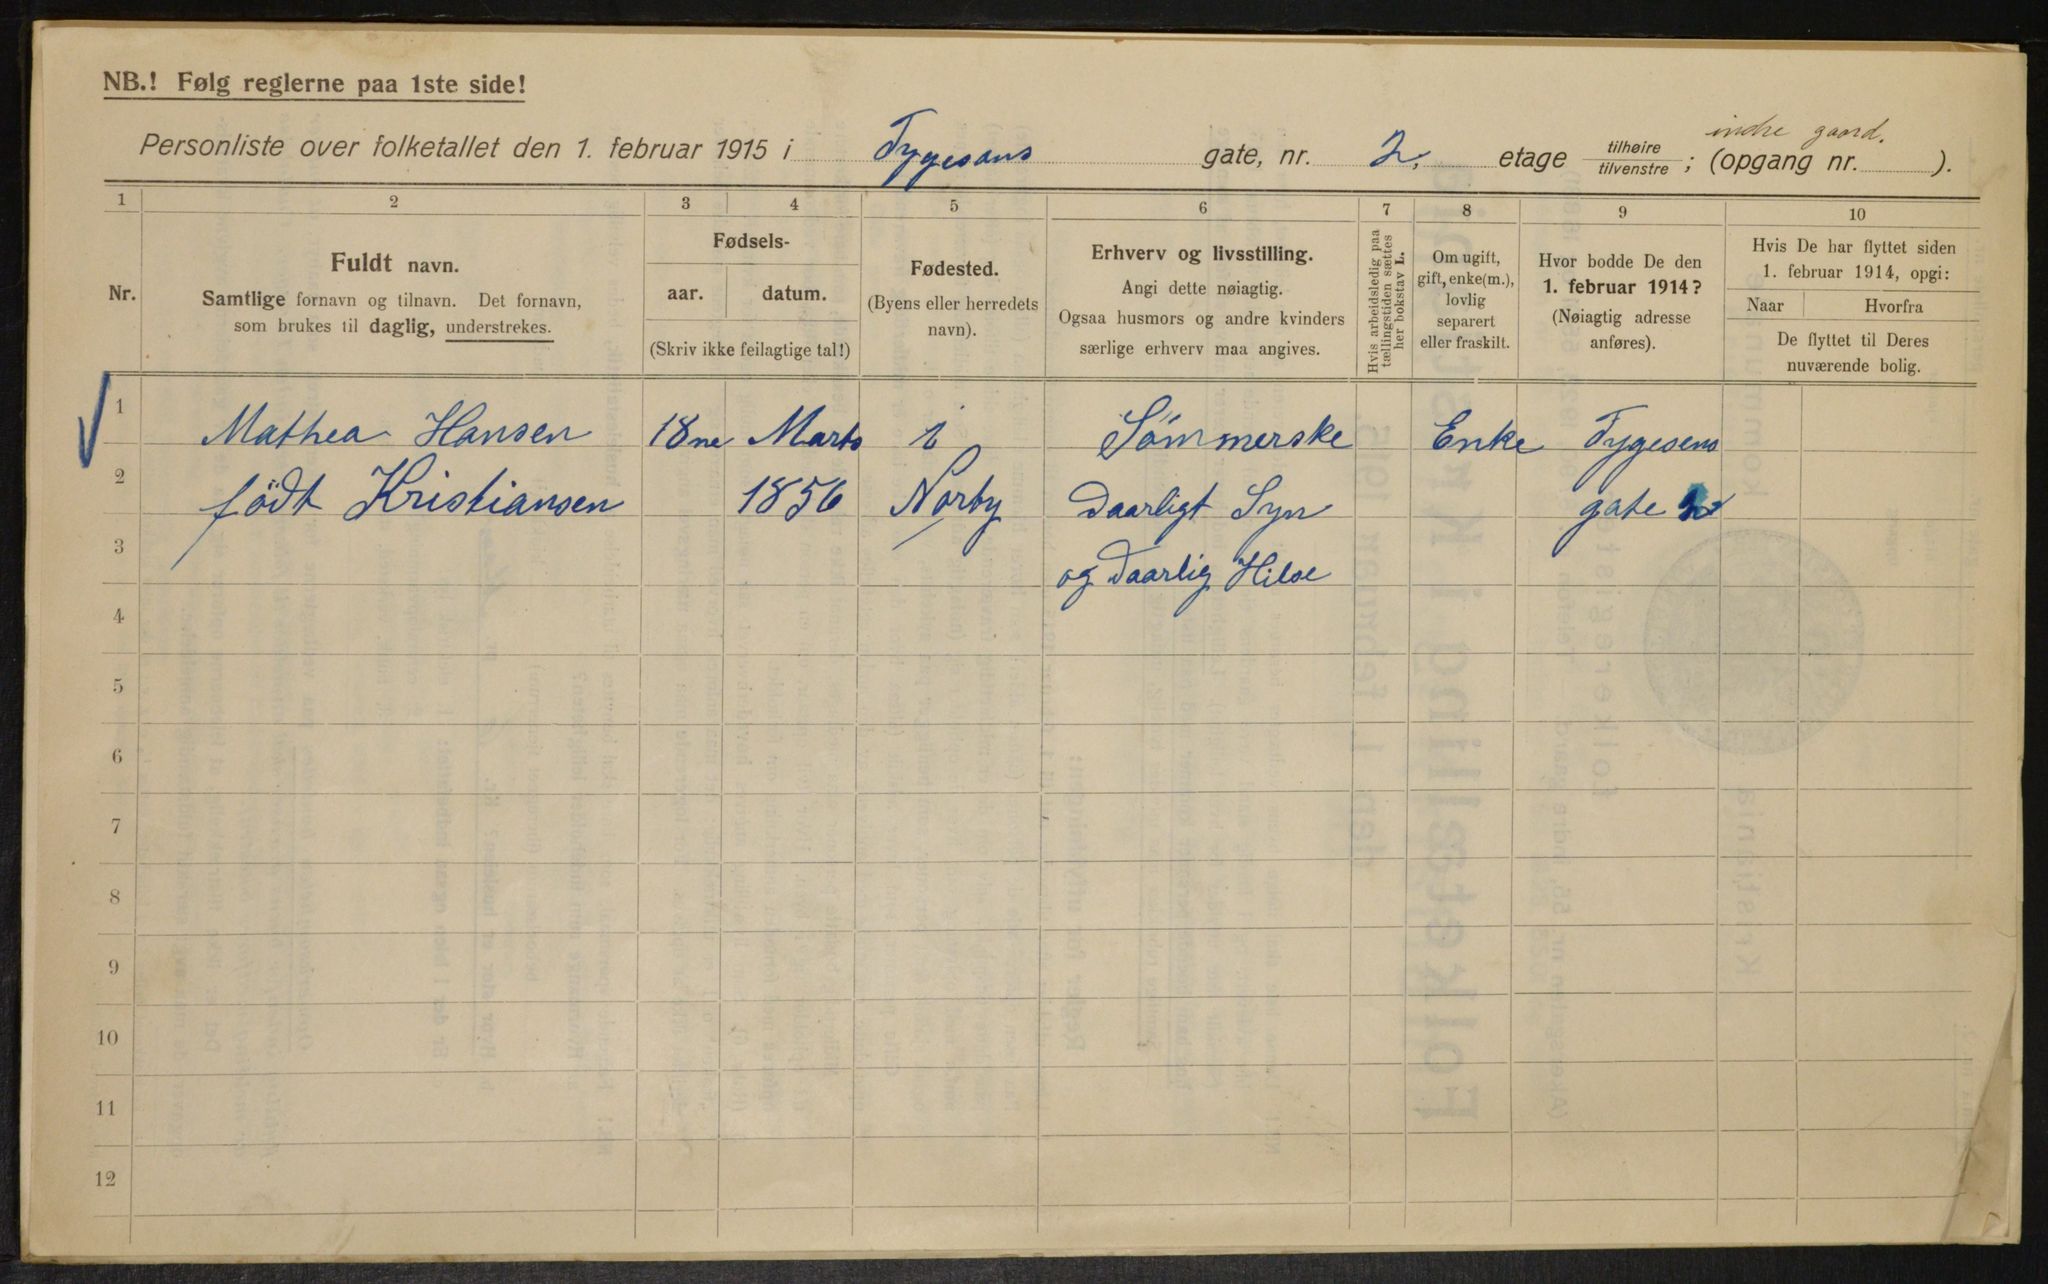 NB.! Følg reglerne paa 1ste side!
indre gaard.
Personliste over folketallet den 1. februar 1915 i Tygesens gate, nr. 2, etage tilhøire/tilvenstre ; (opgang nr. ).
1 2 3 4 5 6 7 8 9 10
Nr.
Fuldt navn.
Samtlige fornavn og tilnavn. Det fornavn,
som brukes til daglig, understrekes.
Fødsels-
aar. datum.
(Skriv ikke feilagtige tal!)
Fødested.
(Byens eller herredets
navn).
Erhverv og livsstilling.
Angi dette nøiagtig.
Ogsaa husmors og andre kvinders
særlige erhverv maa angives.
Hvis arbeidsledig paa
tællingstiden sættes
her bokstav L.
Om ugift,
gift, enke(m.),
lovlig
separert
eller fraskilt.
Hvor bodde De den
1. februar 1914?
(Nøiagtig adresse
anføres).
Hvis De har flyttet siden
1. februar 1914, opgi:
Naar Hvorfra
De flyttet til Deres
nuværende bolig.
1 Mathea Hansen 18ne Marts i Sömmerske Enke Tygesens
2 födt Kristiansen 1856 Norby daarligt Syn gate 2
3 og daarlig Hilse
4
5
6
7
8
9
10
11
12